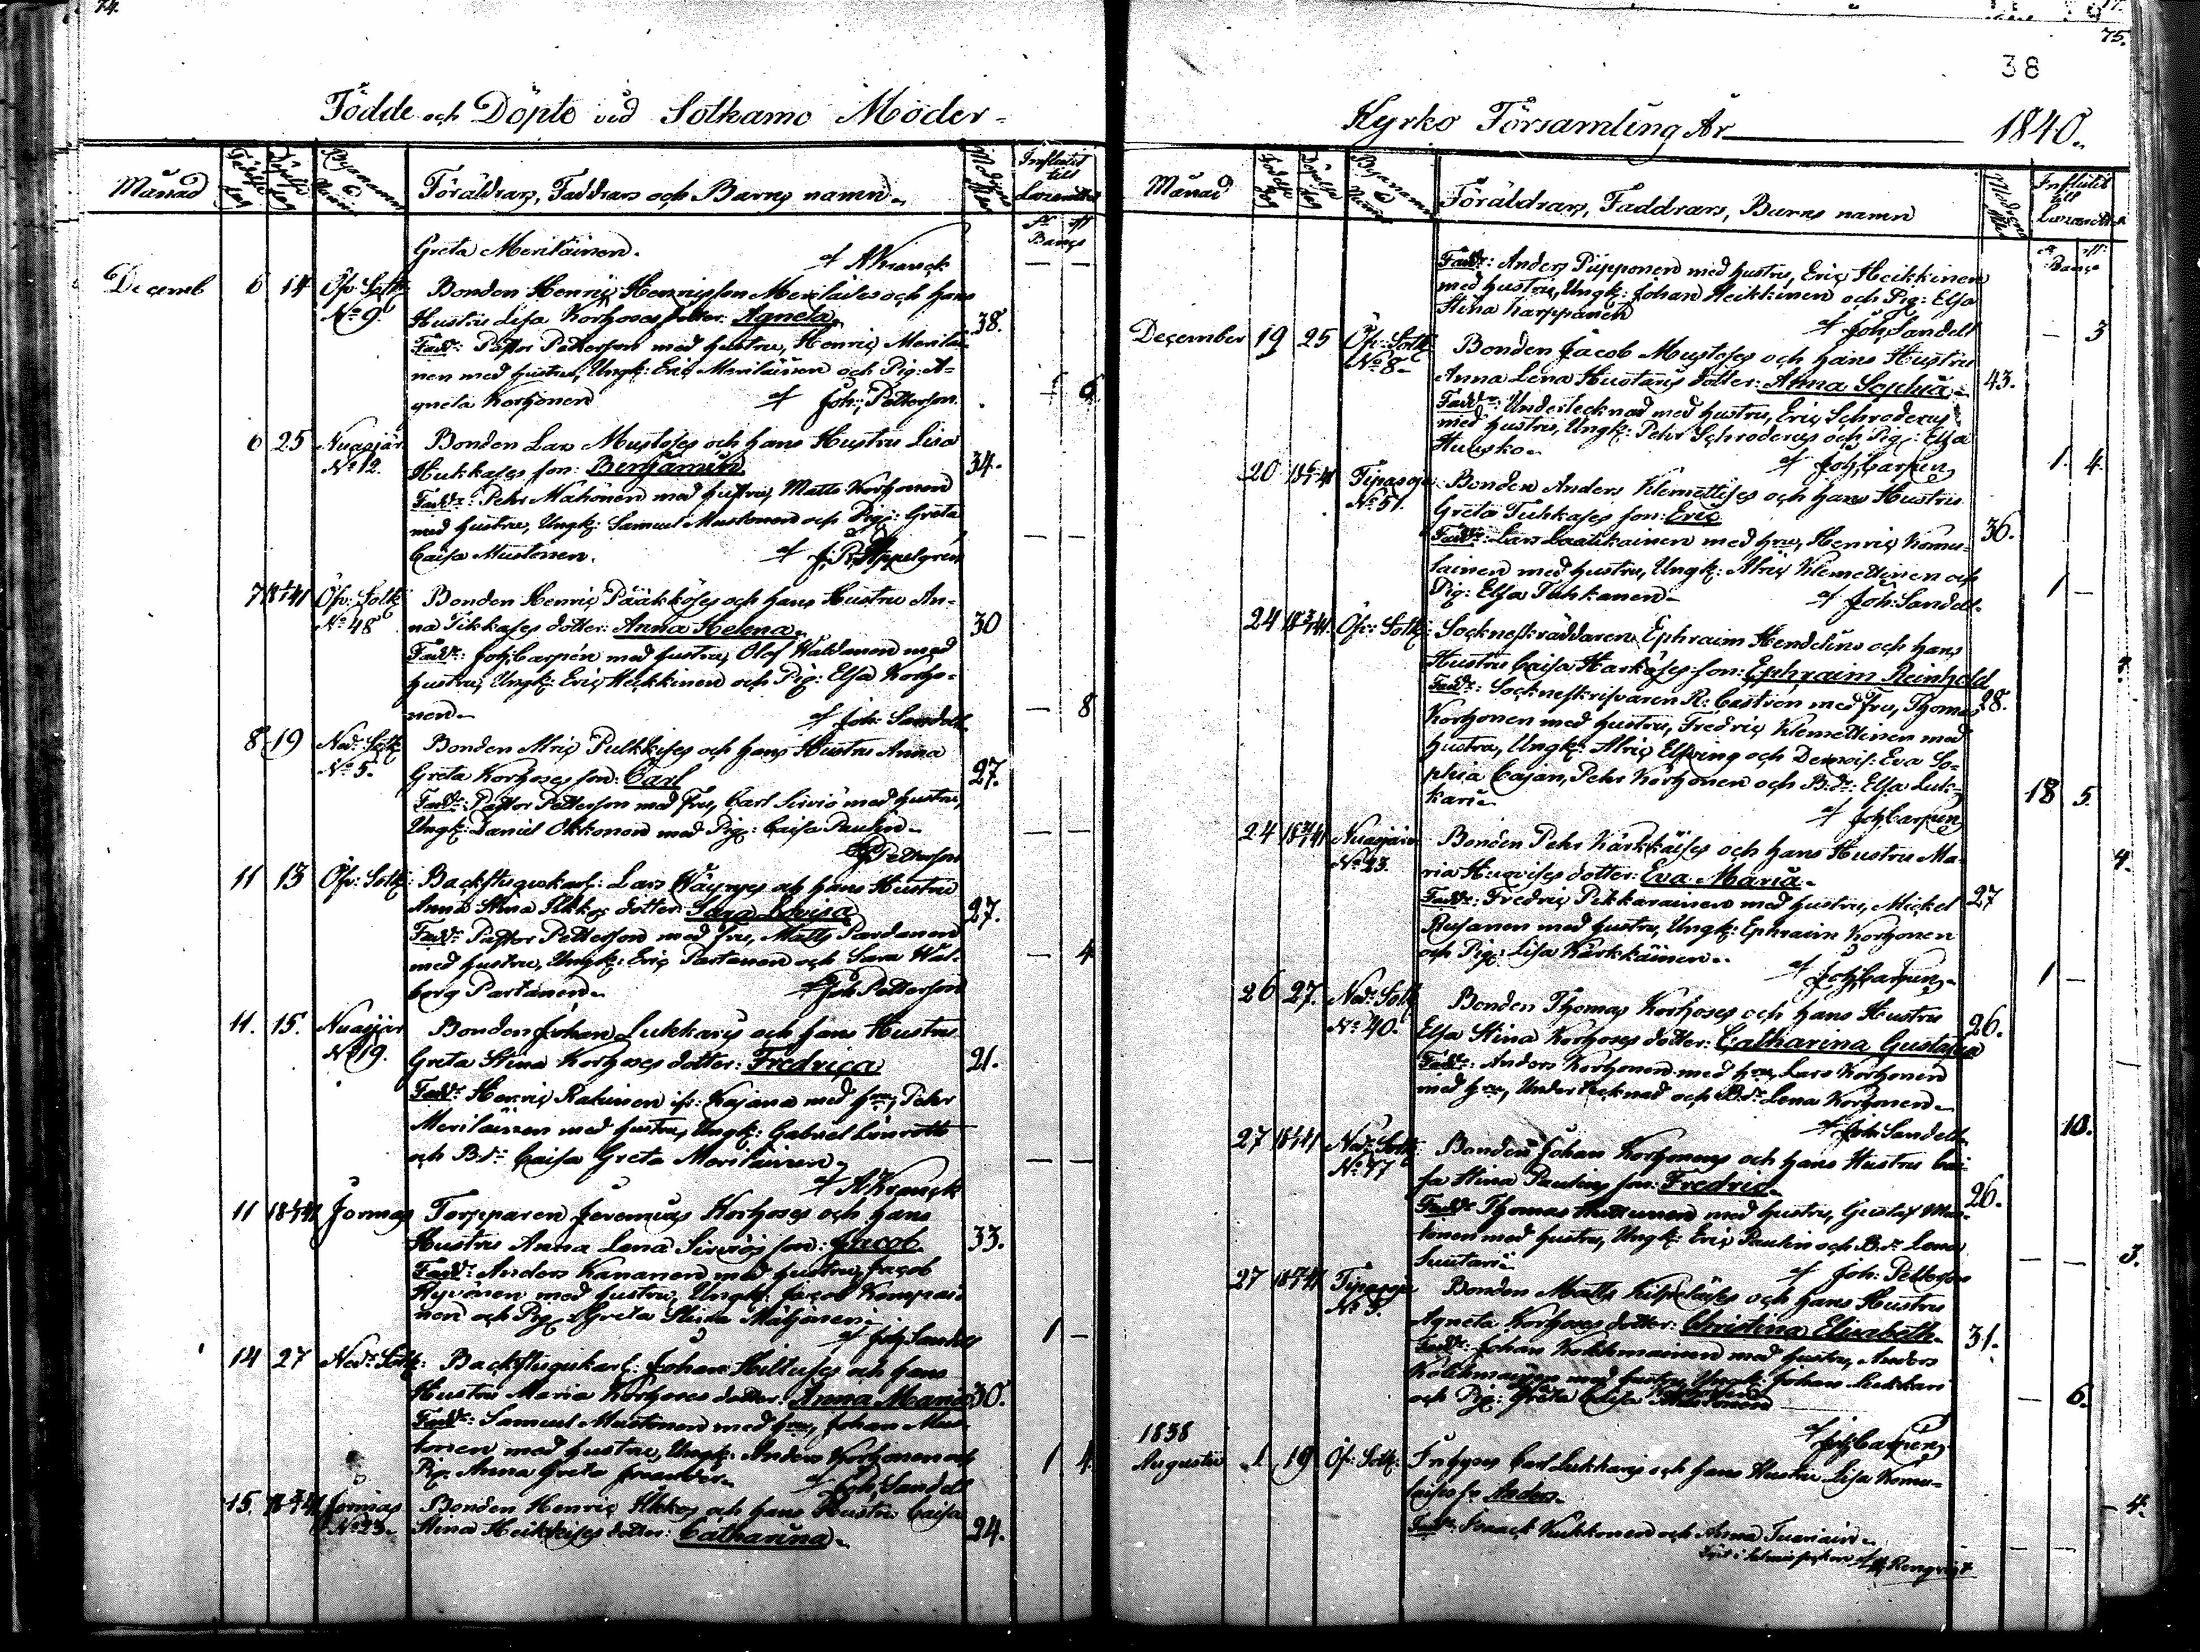 74.
Födde och Döpte vid Sotkamo Moder-
Månad
Födelse dag
Döpelse dag
Byanamn & Num
Föräldrars, Faddrars och Barns namn
Modrens ålder
Influtit till Lazarettet
Banco
Greta Meriläinen. af A Kranck
Decemb 6 14 Öfv: Sotk: Bonden Henric Henricsson Meriläises och hans
No 9. Hustru Lisa Korhoses dotter: Agneta 38.
Fadd: Pastor Petterson med hustru, Henric Meriläi-
nen med hustru, Ungk: Eric Meriläinen och Pig: A-
gneta Korhonen af Joh: Petterson. 6
6 25 Nuasjär Bonden Lars Mustoses och hans Hustru Lisa
No 12. Hukkases son: Benjamin 34.
Fadd: Pehr Mähönen med hustru, Matts Korhonen
med hustru, Ungk: Samuel Mustonen och Pig: Greta
Caisa Mustonen. af J. R. Appelgren
7 Öfv: Sotk: Bonden Henric Pääkköses och hans Hustru An-
No 48 na Tikkases dotter: Anna Helena. 30
Fadd: Joh: Carpén med hustru, Olof Waldanen med
hustru, Ungk: Eric Heikkinen och Pig: Elsa Korho-
nen af Joh: Sandelt 8
8 19 Ned: Sotk: Bonden Alric Pulkkises och hans Hustru Anna
No 5. Greta Korhoses son: Carl 27.
Fadd: Pastor Petterson med Fru, Carl Sirviö med hustru,
Ungk: Daniel Okkonen med Pig: Caisa Paulin
Petterson
11 13 Öfv: Sotk: Backstugukarl: Lars Wäyryses och hans Hustru
Anna Stina dotter: Sara Lovisa 27.
Fadd: Pastor Petterson med fru, Matts Pardanen
med hustru, Ungk: Eric Partanen och Sara Wal-
borg Partanen af Joh Petterson 4
11. 15. Nuasjär Bonden Johan Lukkaris och hans Hustru
No 19. Greta Stina Korhoses dotter: Fredrica 21.
Fadd: Henric Ratinen ifr: Kajana med hru, Pehr
Meriläinen med hustru, Ungk: Gabriel Lönroth
och B.dr Caisa Greta Meriläinen
af A Kranck
11 Jormas Torpparen Jeremias Korhoses och hans
Hustru Anna Lena Sirviös son: Jacob 33.
Fadd: Anders Kananen med hustru, Jacob
Hyvönen med hustru, Ungk: Jacob Kompai-
nen och Pig: Greta Stina Määttinen
af Joh: Sandelt 1
14 27 Ned: Sotk: Backstugukarl: Johan Hiltuses och hans
Hustru Maria Korhoses dotter: Anna Maria 30.
Fadd: Samuel Mustonen med hru, Johan Mus-
tonen med hustru, Ungk: Anders Korhonen och
Pig: Anna Greta af Joh: Sandelt 1 4
15. Jormas Bonden Henric och hans Hustru Caisa
No 23. Stina Heikkises dotter: Catharina 24.
75.
38
Kyrko Församling År 1840.
Månad
Födelse dag
Döpelse dag
Byanamn & Num
Föräldrars, Faddrars, Barns namn
Modrens ålder
Influtit till Lazarettet
Banco
Fadd: Anders Piipponen med hustru, Eric Heikkinen
med hustru, Ungk: Johan Heikkinen och Pig: Elsa
Stina Karppanen af Joh: Sandelt 3
December 19 25 Öfv: Sotk: Bonden Jacob Mustoses och hans Hustru
No 8 Anna Lena Hustaris dotter: Anna Sophia 43.
Fadd: Undertecknad med hustru, Eric Schroderus
med hustru, Ungk: Pehr Schroderus och Pig: Elsa
Huusko af Joh: Carpen 1. 4.
20 Tipasoja Bonden Anders Klemettises och hans Hustru
No 51. Greta Tuhkases son: Eric 36.
Fadd: Lars Laatikainen med hru, Henric Komu-
lainen med hustru, Ungk: Alric Klemettinen och
Pig: Elsa Tuhkanen af Joh: Sandelt. 1
24 Öfv: Sotk: Sockneskräddaren Ephraim Hendelins och hans
Hustru Caisa Harköses son: Ephraim Reinhold 28.
Fadd: Socknesskrifvaren R: Castren med fru, Thomas
Korhonen med hustru, Fredric Klemettinen med
hustru, Ungk: Alric Elfving och Demois: Eva So-
phia Cajan, Pehr Korhonen och B.dr: Elsa Luk-
kari af Joh: Carpen 18 5.
24 Nuasjär Bonden Pehr Kärkkäises och hans Hustru Ma-
No 23. ria Huovises dotter: Eva Maria 27
Fadd: Fredric Pikkarainen med hustru, Mickel
Rusanen med hustru, Ungk: Ephraim Korhonen
och Pig: Lisa Kärkkäinen
af Joh: Carpen 1
26 27. Ned: Sotk Bonden Thomas Korhoses och hans Hustru
No 40. Elsa Stina Korhoses dotter: Catharina Gustafva 26.
Fadd: Anders Korhonen med hru, Lars Korhonen
med hru, Undertecknad och B.dr Lena Korhonen
af Joh: Sandelt 10.
27 Ned: Sotk Bonden Johan Korhonens och hans Hustru Cai-
No 77 sa Stina Paulins son: Fredric 26.
Fadd: Thomas Huttunen med hustru, Gustaf Mus-
tonen med hustru, Ungk: Eric Paulin och B.dr Lena
Suutari af Joh: Petterson 3.
27 Tipasoja Bonden Matts Kilpeläises och hans Hustru
No 3. Agneta Korhoses dotter: Christina Elisabeth 31.
Fadd: Johan Kolehmainen med hustru, Anders
Kolehmainen med hustru, Ungk: Johan Lukkari
och Pig: Greta Caisa 6.
af Joh: Carpen
1838
Augusti 1 19 Öfv: Sotk: Inhyses Carl Lukkaris och hans Hustru Lisa Komu-
laises son Anders
Fadd: Isaack Kukkonen och Anna Tuomain
af Renqvist 4.